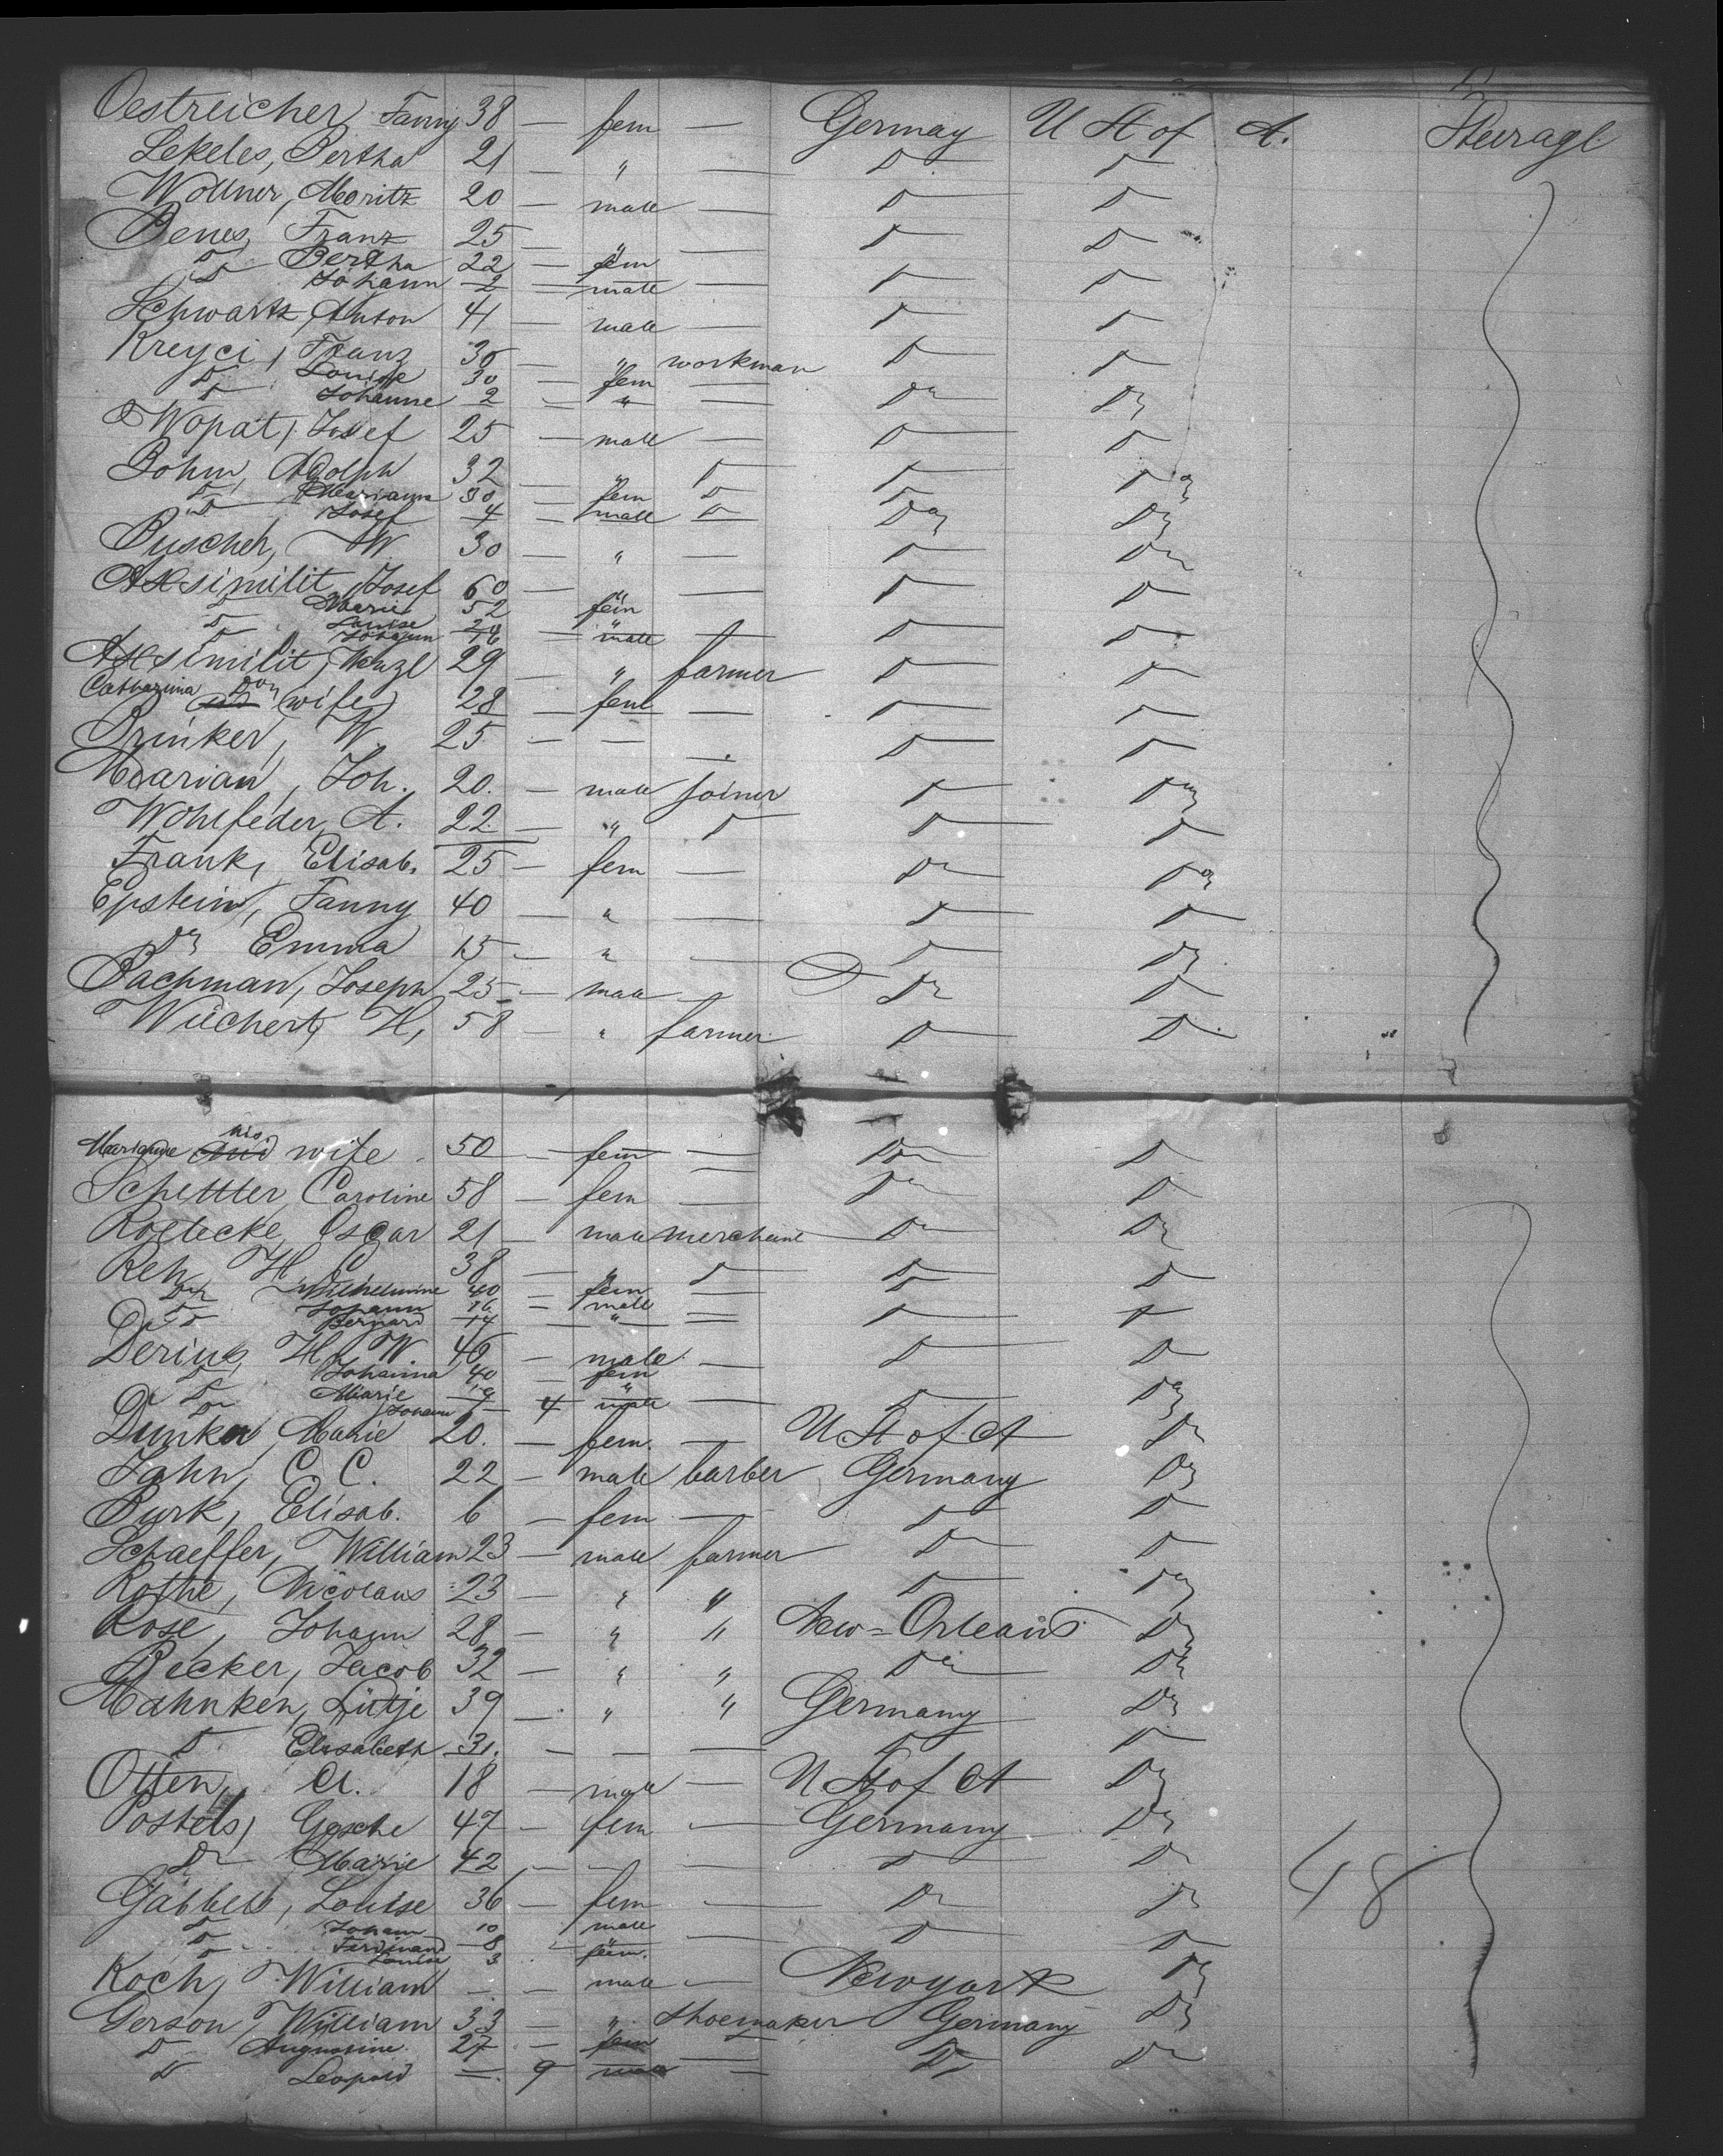 Oestreicher, Fanny 38 — fem — Germay U St of A. Steerage
Lekeles, Bertha 21 — " — D D
Wollner, Moritz 20 — male — D D
Benes, Franz 25 — " — D D
D Bertha 22 — fem
D Johann 2 — male — D D
Schwartz, Anton 41 — male — D D
Kreyci, Franz 36 — " workman D D
D Louise 30 — fem —
D Johanne 2 — " — Do Do
Wopat, Josef 25 — male — D D
Böhm, Adolph 32 — " D D Do
D Marianna 30 — fem D
D Josef 4 — male D Do Do
Puscheh, W 30 — " — D Do
Axsimilit, Josef 60 — " — D D
D Marie 52 fem
D Louise 24 "
D Johann 16 — male — D D
Axsimilit, Wenzl 29 — " farmer D D
Catharina Do (wife) 28 — fem — D D
Brinker, W. 25 — — — D D
Marian, Joh. 20. — male joiner D Do
Wohlfeder, A. 22. — " D D D
Frank, Elisab. 25 — fem — Do Do
Epstein, Fanny 40 — " — D D
Do Emma 15 — " — D Do
Bachman, Joseph 25 — male — Do D
Wiechert, H, 58 — " farmer D D
his
wife 50 — fem — Do D
Schettler, Caroline 58 — fem — Do D
Roelecke, Oscar 21 — male merchant Do Do
Reh, H 38 — " D D D
Do Wilhelmine 40 — fem — D
D Johann 16 — male —
D Bernard 14 — " — D D
Dering, H. W 46 — male — D D
D Johanna 40 — fem
D Marie "
Do Johann — 4 male — D Do
Dunker, Marie 20. — fem. — U St of A Do
Jahn, C C. 22 — male barber Germany Do
Burk, Elisab. 6 — fem — D D
Schaeffer, William 23 — male farmer D D
Rothe, Nicolaus 23 — " " D Do
Rose, Johann 28 — " " New=Orleans Do
Becker, Jacob 32 — " " Do Do
Mahnken, Lütje 39 — " " Germany Do
D Elisabeth 31. — — — D D
Otten, A. 18 — male — U St of A Do
Postels, Gesche 47 — fem — Germany Do
Do Marie 42 — - — D D
Gäbbels, Louise 36 — fem — Do Do 48
D Johann 10 male
D Ferdinand 8 — " — D D
D Louise 3 fem.
Koch, William — — male — Newyork Do
Gerson, William 33 — " Shoemaker Germany Do
D Augustine 27 — fem —
D Leopold — 9 male — Do Do